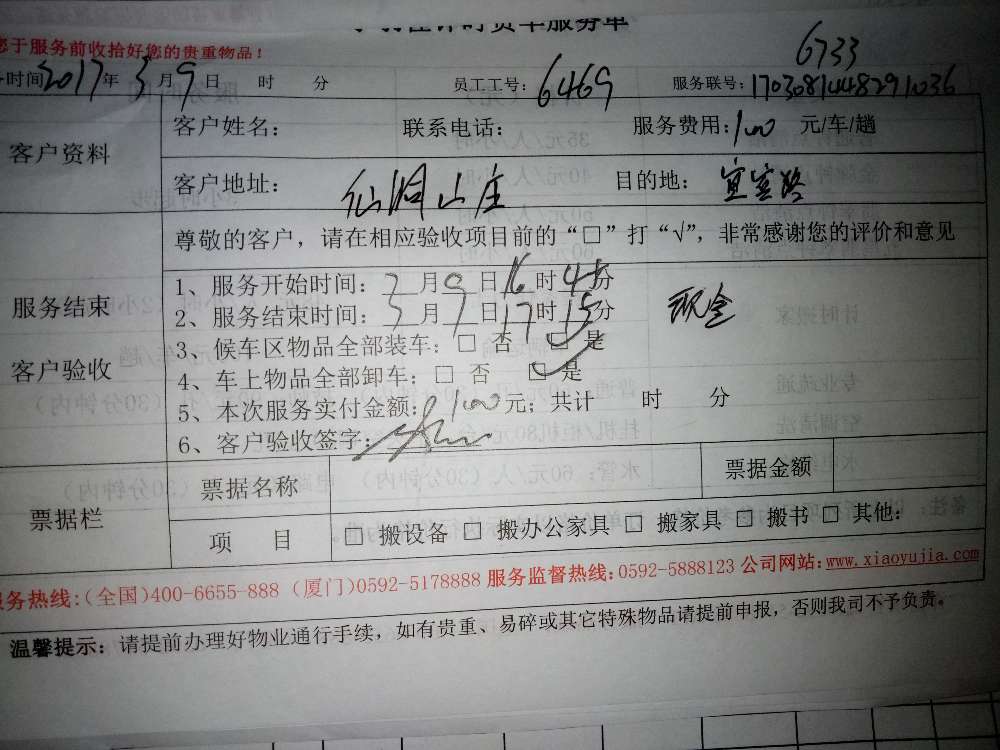 计时货车服务单
您于服务前收拾好您的贵重物品！
6733
时间2017年3月9日 时 分 员工工号：6469 服务联号：17030814448291036
客户资料
客户姓名： 联系电话： 服务费用：100 元/车/趟
客户地址：仙洞山庄 目的地：宜宾路
尊敬的客户，请在相应验收项目前的“□”打“√”，非常感谢您的评价和意见
服务结束
客户验收
1、服务开始时间：3月9日16时45分
2、服务结束时间：3月9日17时15分 现金
3、候车区物品全部装车：□ 否 □ 是
4、车上物品全部卸车：□ 否 □ 是
5、本次服务实付金额：100元；共计 时 分
6、客户验收签字：
票据栏
票据名称 票据金额
项 目 □ 搬设备 □ 搬办公家具 □ 搬家具 □ 搬书 □ 其他：
服务热线：(全国)400-6655-888 (厦门)0592-5178888 服务监督热线：0592-5888123 公司网站：www.xiaoyujia.com
温馨提示：请提前办理好物业通行手续，如有贵重、易碎或其它特殊物品请提前申报，否则我司不予负责。